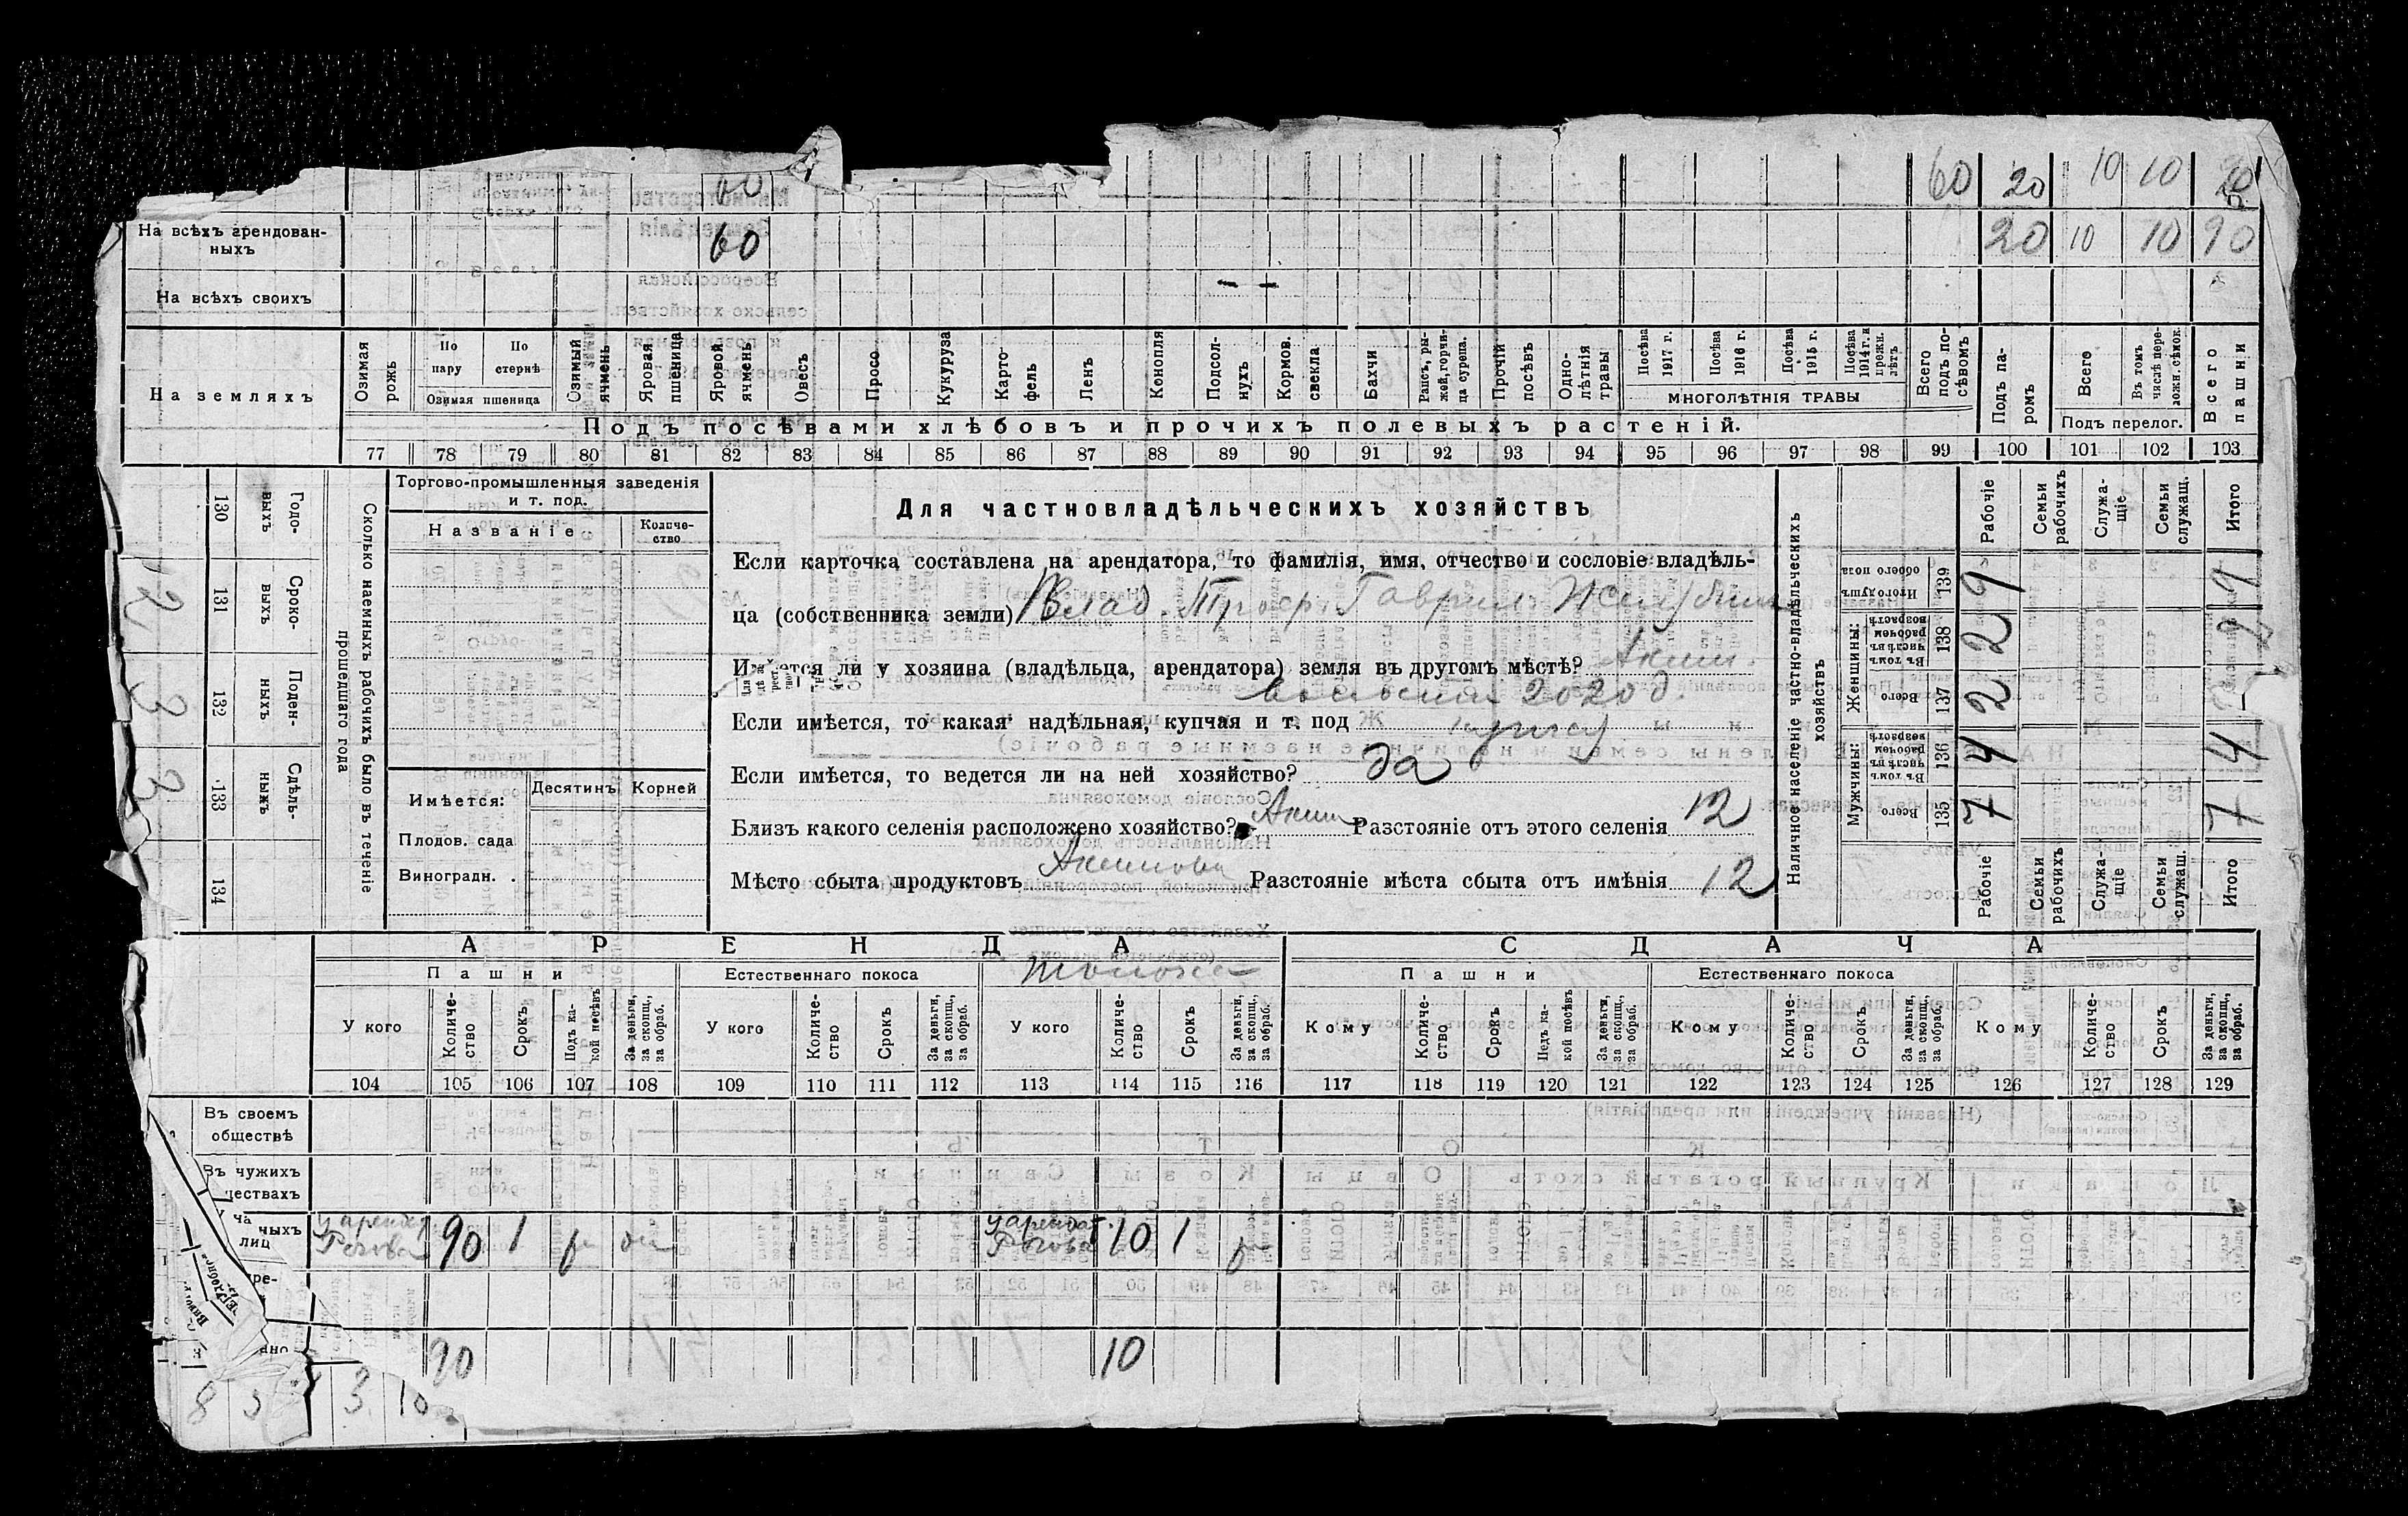 60 60 20 10 10
На всѣхъ арендован-
ныхъ 60 20 10 10 90
На всѣхъ своихъ
На земляхъ
Озимая рожь
По пару
По стернѣ
Озимая пшеница
Озимый ячмень
Яровая пшеница
Яровой ячмень
Овесъ
Просо
Кукуруза
Карто-
фель
Ленъ
Конопля
Подсол-
нухъ
Кормов. свекла
Бахчи
Рапсъ, ры-
жей, горчи-
ца сурепа.
Прочій посѣвъ
Одно-
лѣтнія травы
Посѣва 1917 г.
Посѣва 1916 г.
Посѣва 1915 г.
Посѣва 1914 г. и прежн. лѣтъ
МНОГОЛѢТНІЯ ТРАВЫ
Всего подъ по-
сѣвомъ
Подъ па-
ромъ
Всего
Въ томъ числѣ пере-
ложн. сѣнок.
Подъ перелог.
Всего пашни
Подъ посѣвами хлѣбовъ и прочихъ полевыхъ растеній.
77 78 79 80 81 82 83 84 85 86 87 88 89 90 91 92 93 94 95 96 97 98 99 100 101 102 103
Сколько наемныхъ рабочихъ было въ теченіе
прошедшаго года
Годо-
выхъ
130
Сроко-
выхъ
131
Поден-
ныхъ
132
Сдѣль-
ныхъ
133
134
2
3
3
Торгово-промышленныя заведенія
и т. под.
Названіе
Количе-
ство
Имѣется:
Десятинъ
Корней
Плодов. сада
Виноградн. .
Для частновладѣльческихъ хозяйствъ
Если карточка составлена на арендатора, то фамилія, имя, отчество и сословіе владѣль-
ца (собственника земли) Влад. Троф. Гаврил.
Имѣется ли у хозяина (владѣльца, арендатора) земля въ другомъ мѣстѣ? Аким.
2020 д.
Если имѣется, то какая: надѣльная, купчая и т. под купчая
Если имѣется, то ведется ли на ней хозяйство? да
Близъ какого селенія расположено хозяйство? Аким Разстояніе отъ этого селенія 12
Мѣсто сбыта продуктовъ Акимовка Разстояніе мѣста сбыта отъ имѣнія 12
Наличное населеніе частно-владѣльческихъ
хозяйствъ
Рабочіе
Семьи рабочихъ
Служа-
щіе
Семьи служащ.
Итого
Итого душъ обоего пола
139
9 9
Женщины:
Въ томъ числѣ въ рабочемъ возрастѣ
138
2 2
Всего
137
2
Мужчины:
Въ томъ числѣ въ рабочемъ возрастѣ
136
4 4
Всего
135
7 7
Рабочіе
Семьи рабочихъ
Служа-
щіе
Семьи служащ.
Итого
АРЕНДА
СДАЧА
Пашни
Естественнаго покоса
толока
Пашни
Естественнаго покоса
У кого
Количе-
ство
Срокъ
Подъ ка-
кой посѣвъ
За деньги, за скопщ., за обраб.
У кого
Количе-
ство
Срокъ
За деньги, за скопщ., за обраб.
У кого
Количе-
ство
Срокъ
За деньги, за скопщ., за обраб.
Кому
Количе-
ство
Срокъ
Подъ ка-
кой посѣвъ
За деньги, за скопщ., за обраб.
Кому
Количе-
ство
Срокъ
За деньги, за скопщ., за обраб.
Кому
Количе-
ство
Срокъ
За деньги, за скопщ., за обраб.
104 105 106 107 108 109 110 111 112 113 114 115 116 117 118 119 120 121 122 123 124 125 126 127 128 129
Въ своемъ
обществѣ
Въ чужихъ
ществахъ
ча
ныхъ
лиц
у арендат. 90 1 у арендат. 10 1
90 10
8 3 3 10